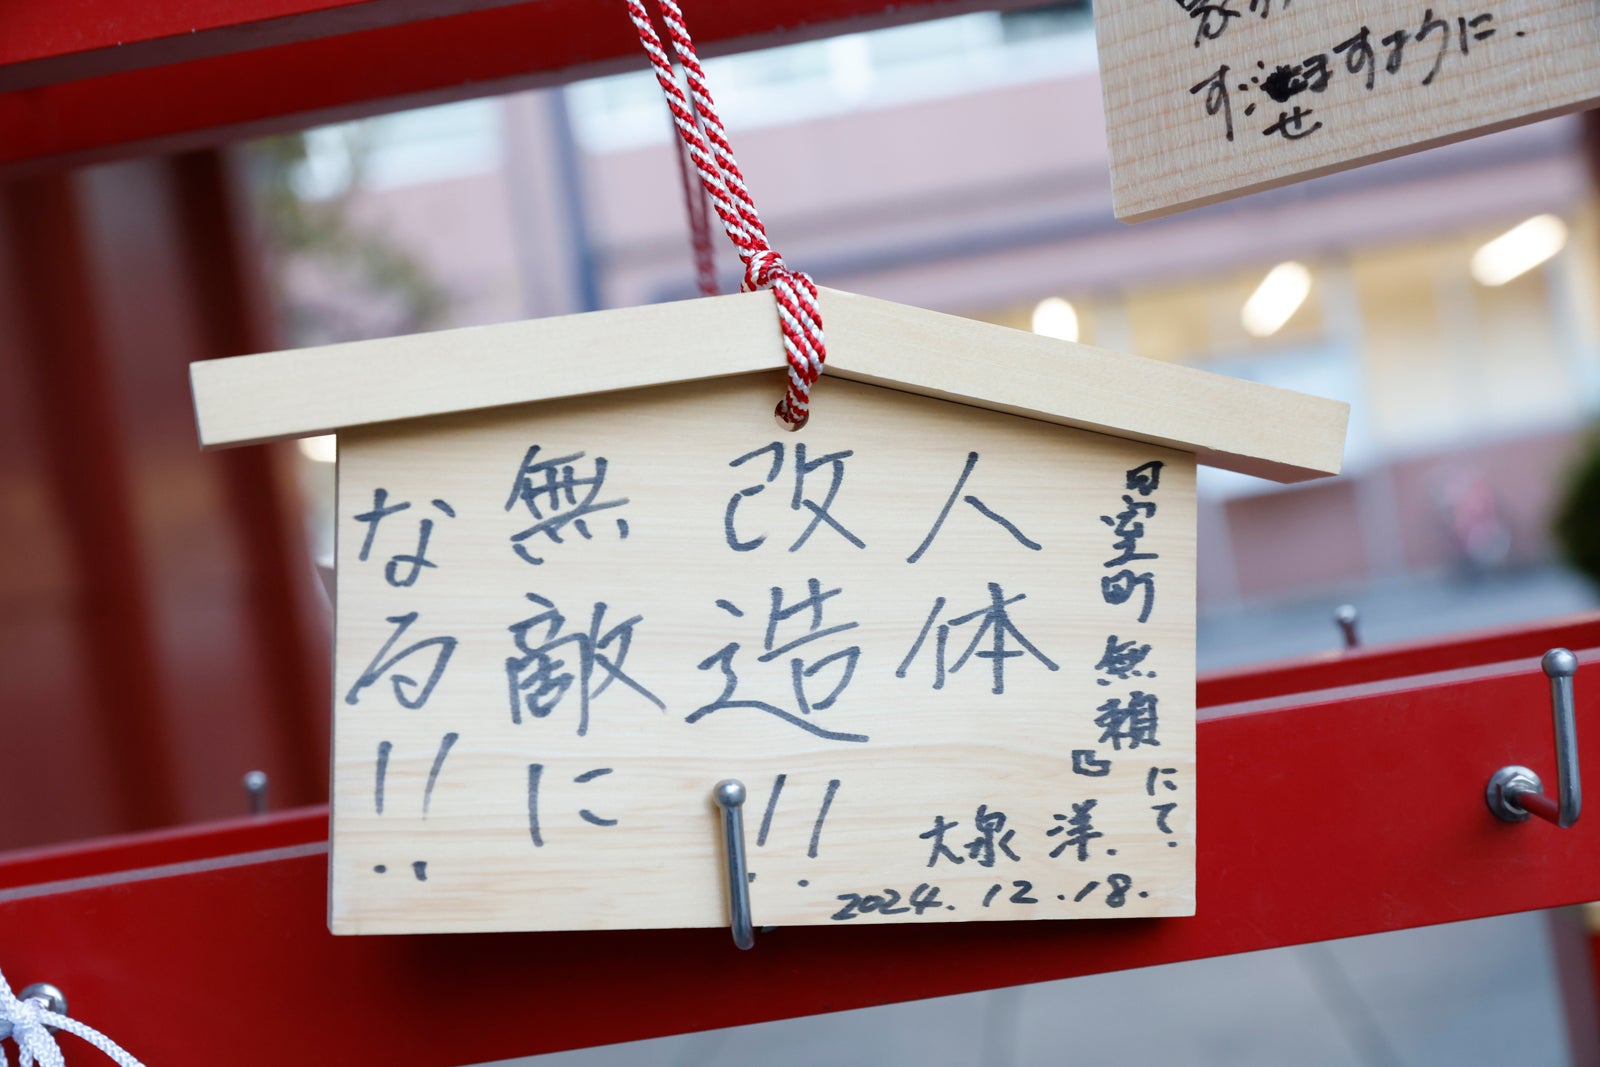 『室町無頼』にて.
人体
改造!!
無敵に
なる!!
大泉 洋.
2024.12.18.
すように.
せ